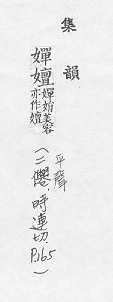 集韻
嬋嬗
嬋娟美容
亦作嬗
平聲
(二僊.時連切P.165)